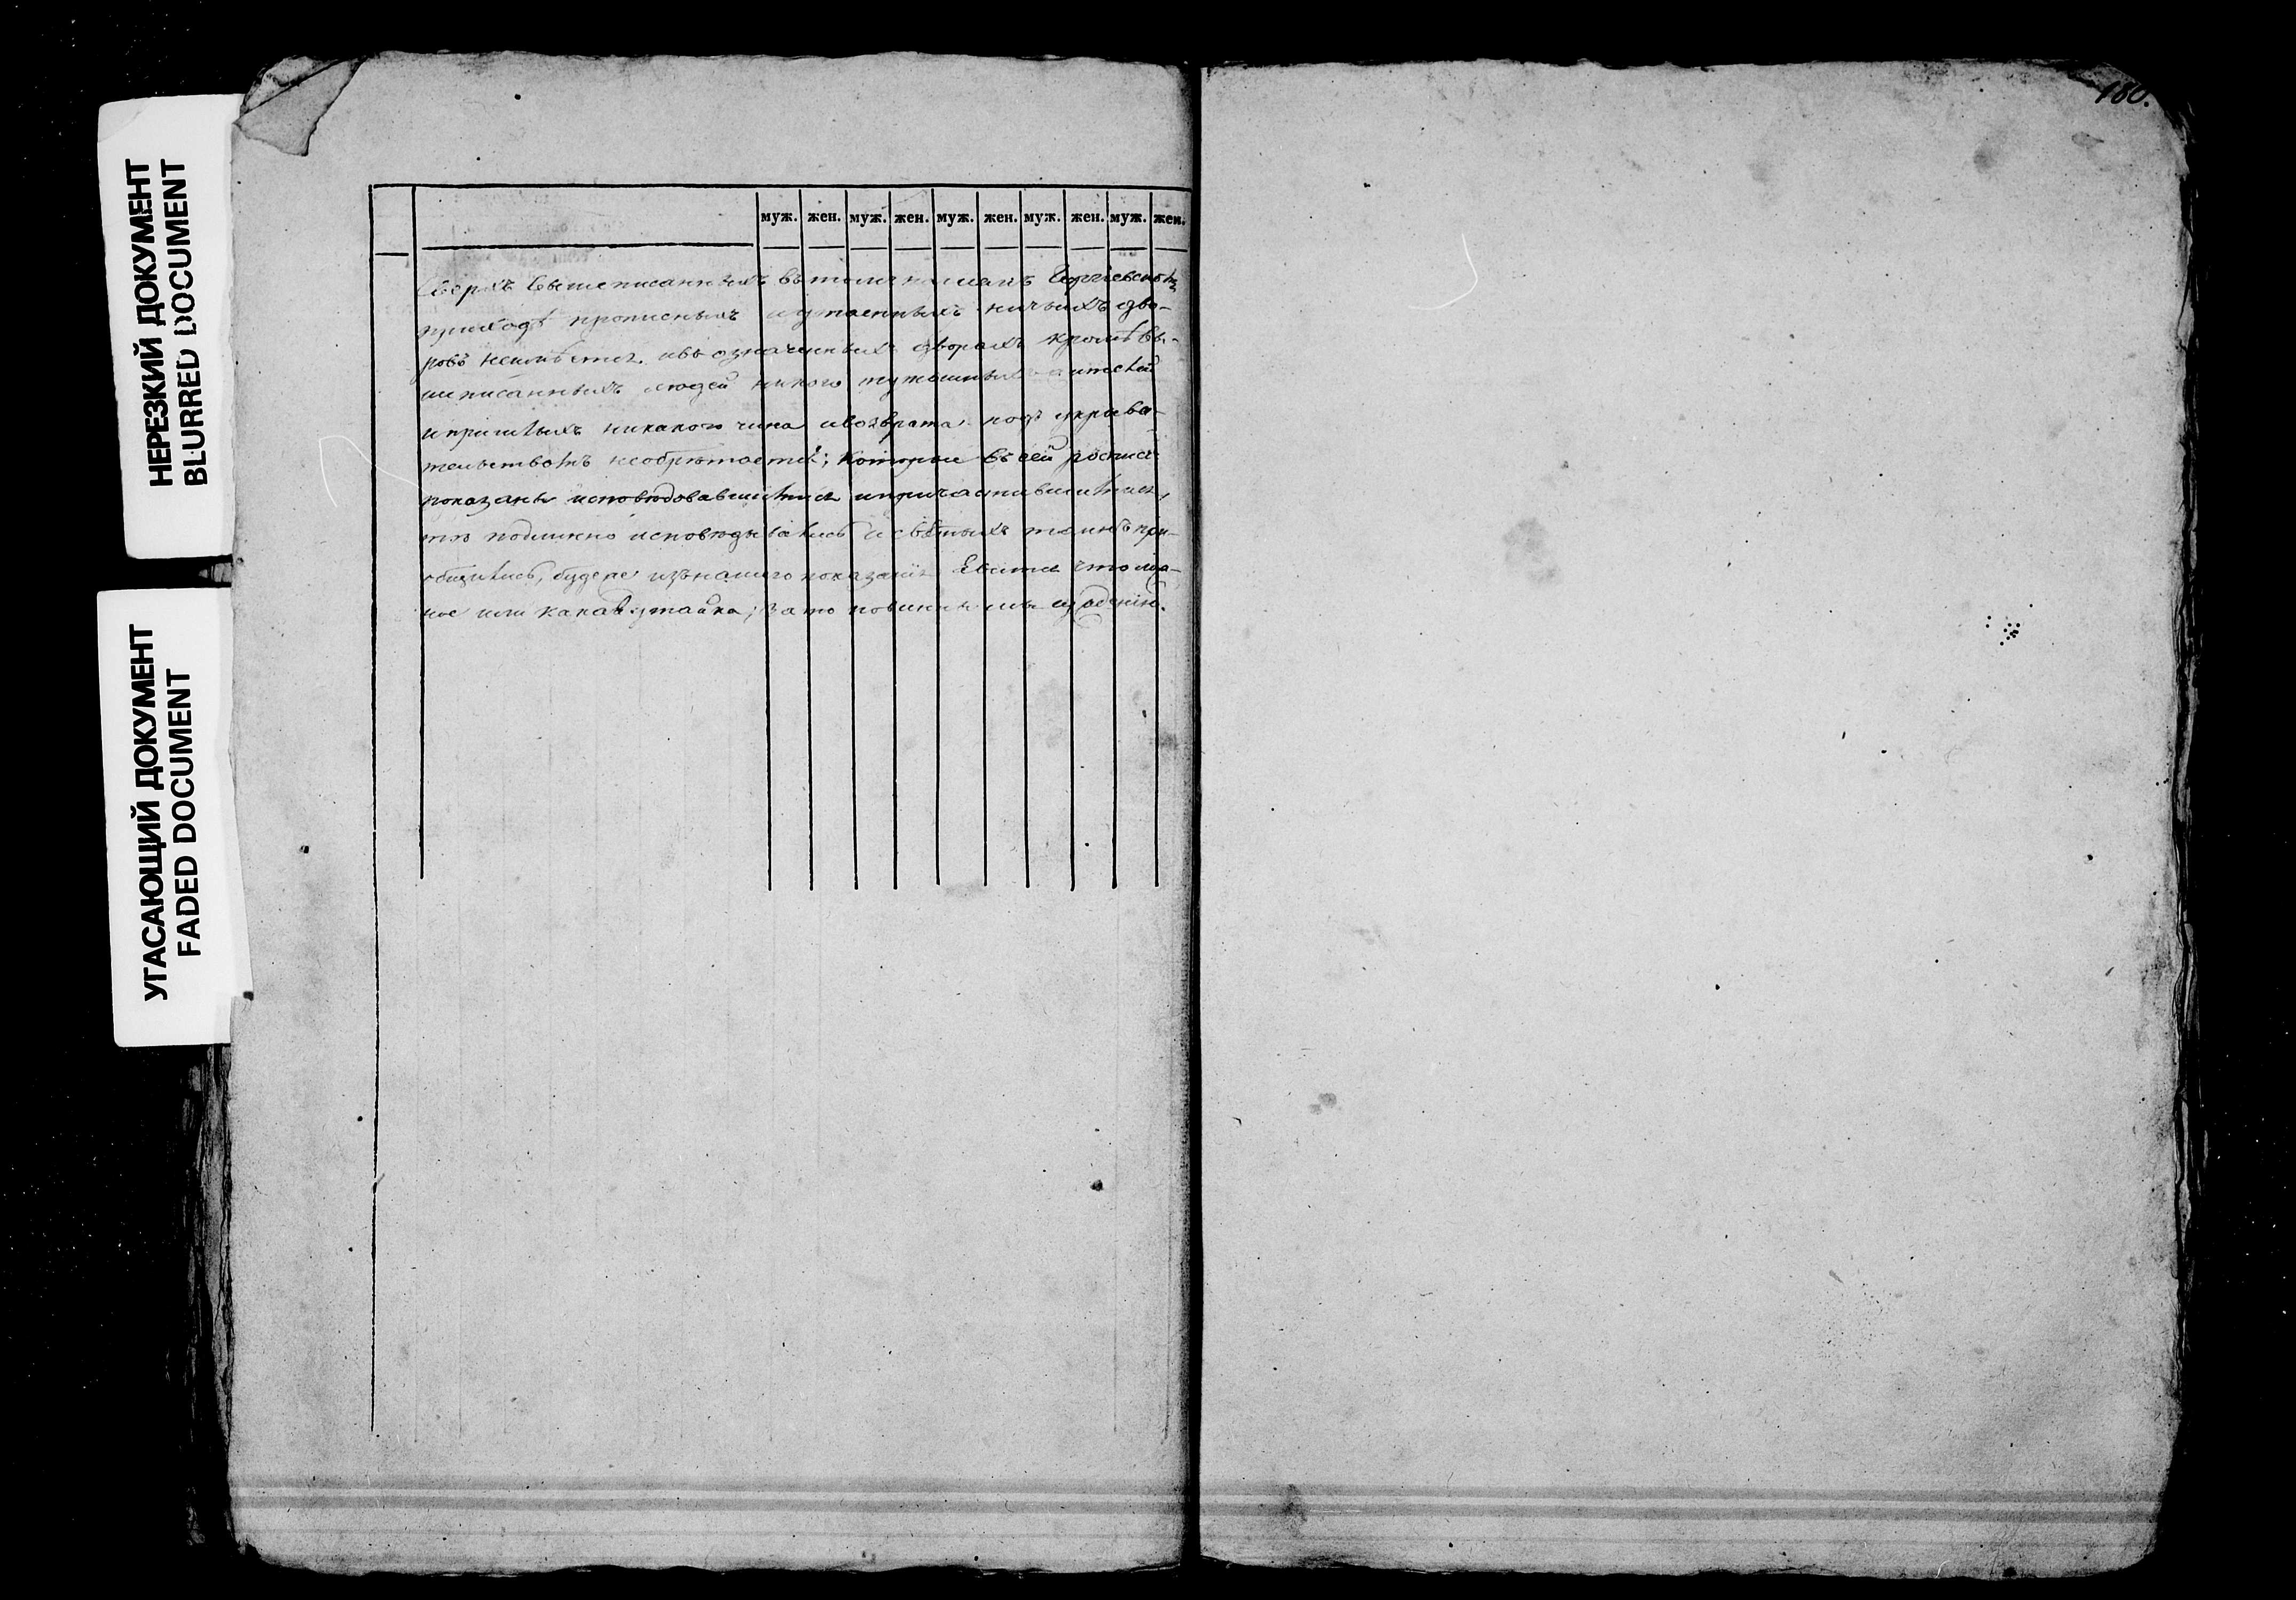 НЕРЕЗКИЙ ДОКУМЕНТ
BLURRED DOCUMENT
УГАСАЮЩИЙ ДОКУМЕНТ
FADED DOCUMENT
180.
муж. жен. муж. жен. муж. жен. муж. жен. муж. жен.
Сверхъ вышеписанныхъ въ томъ
приходѣ прописныхъ и утаенныхъ ничьихъ дво-
ровъ неимѣется. ивъ означенныхъ дворахъ кромѣ вы-
шеписанныхъ людей никого тутошныхъ жителей
и пришлыхъ никакого чина ивозраста подъ укрыва-
тельствомъ необрѣтается; которые въ сей росписи
показаны исповѣдовавшимися ипричастившимися,
тѣ подлинно исповѣдывались и святыхъ таинъ при-
общились, буде же изъ нашего показанія явится что лож-
ное или какая утайка; зато повинны мы